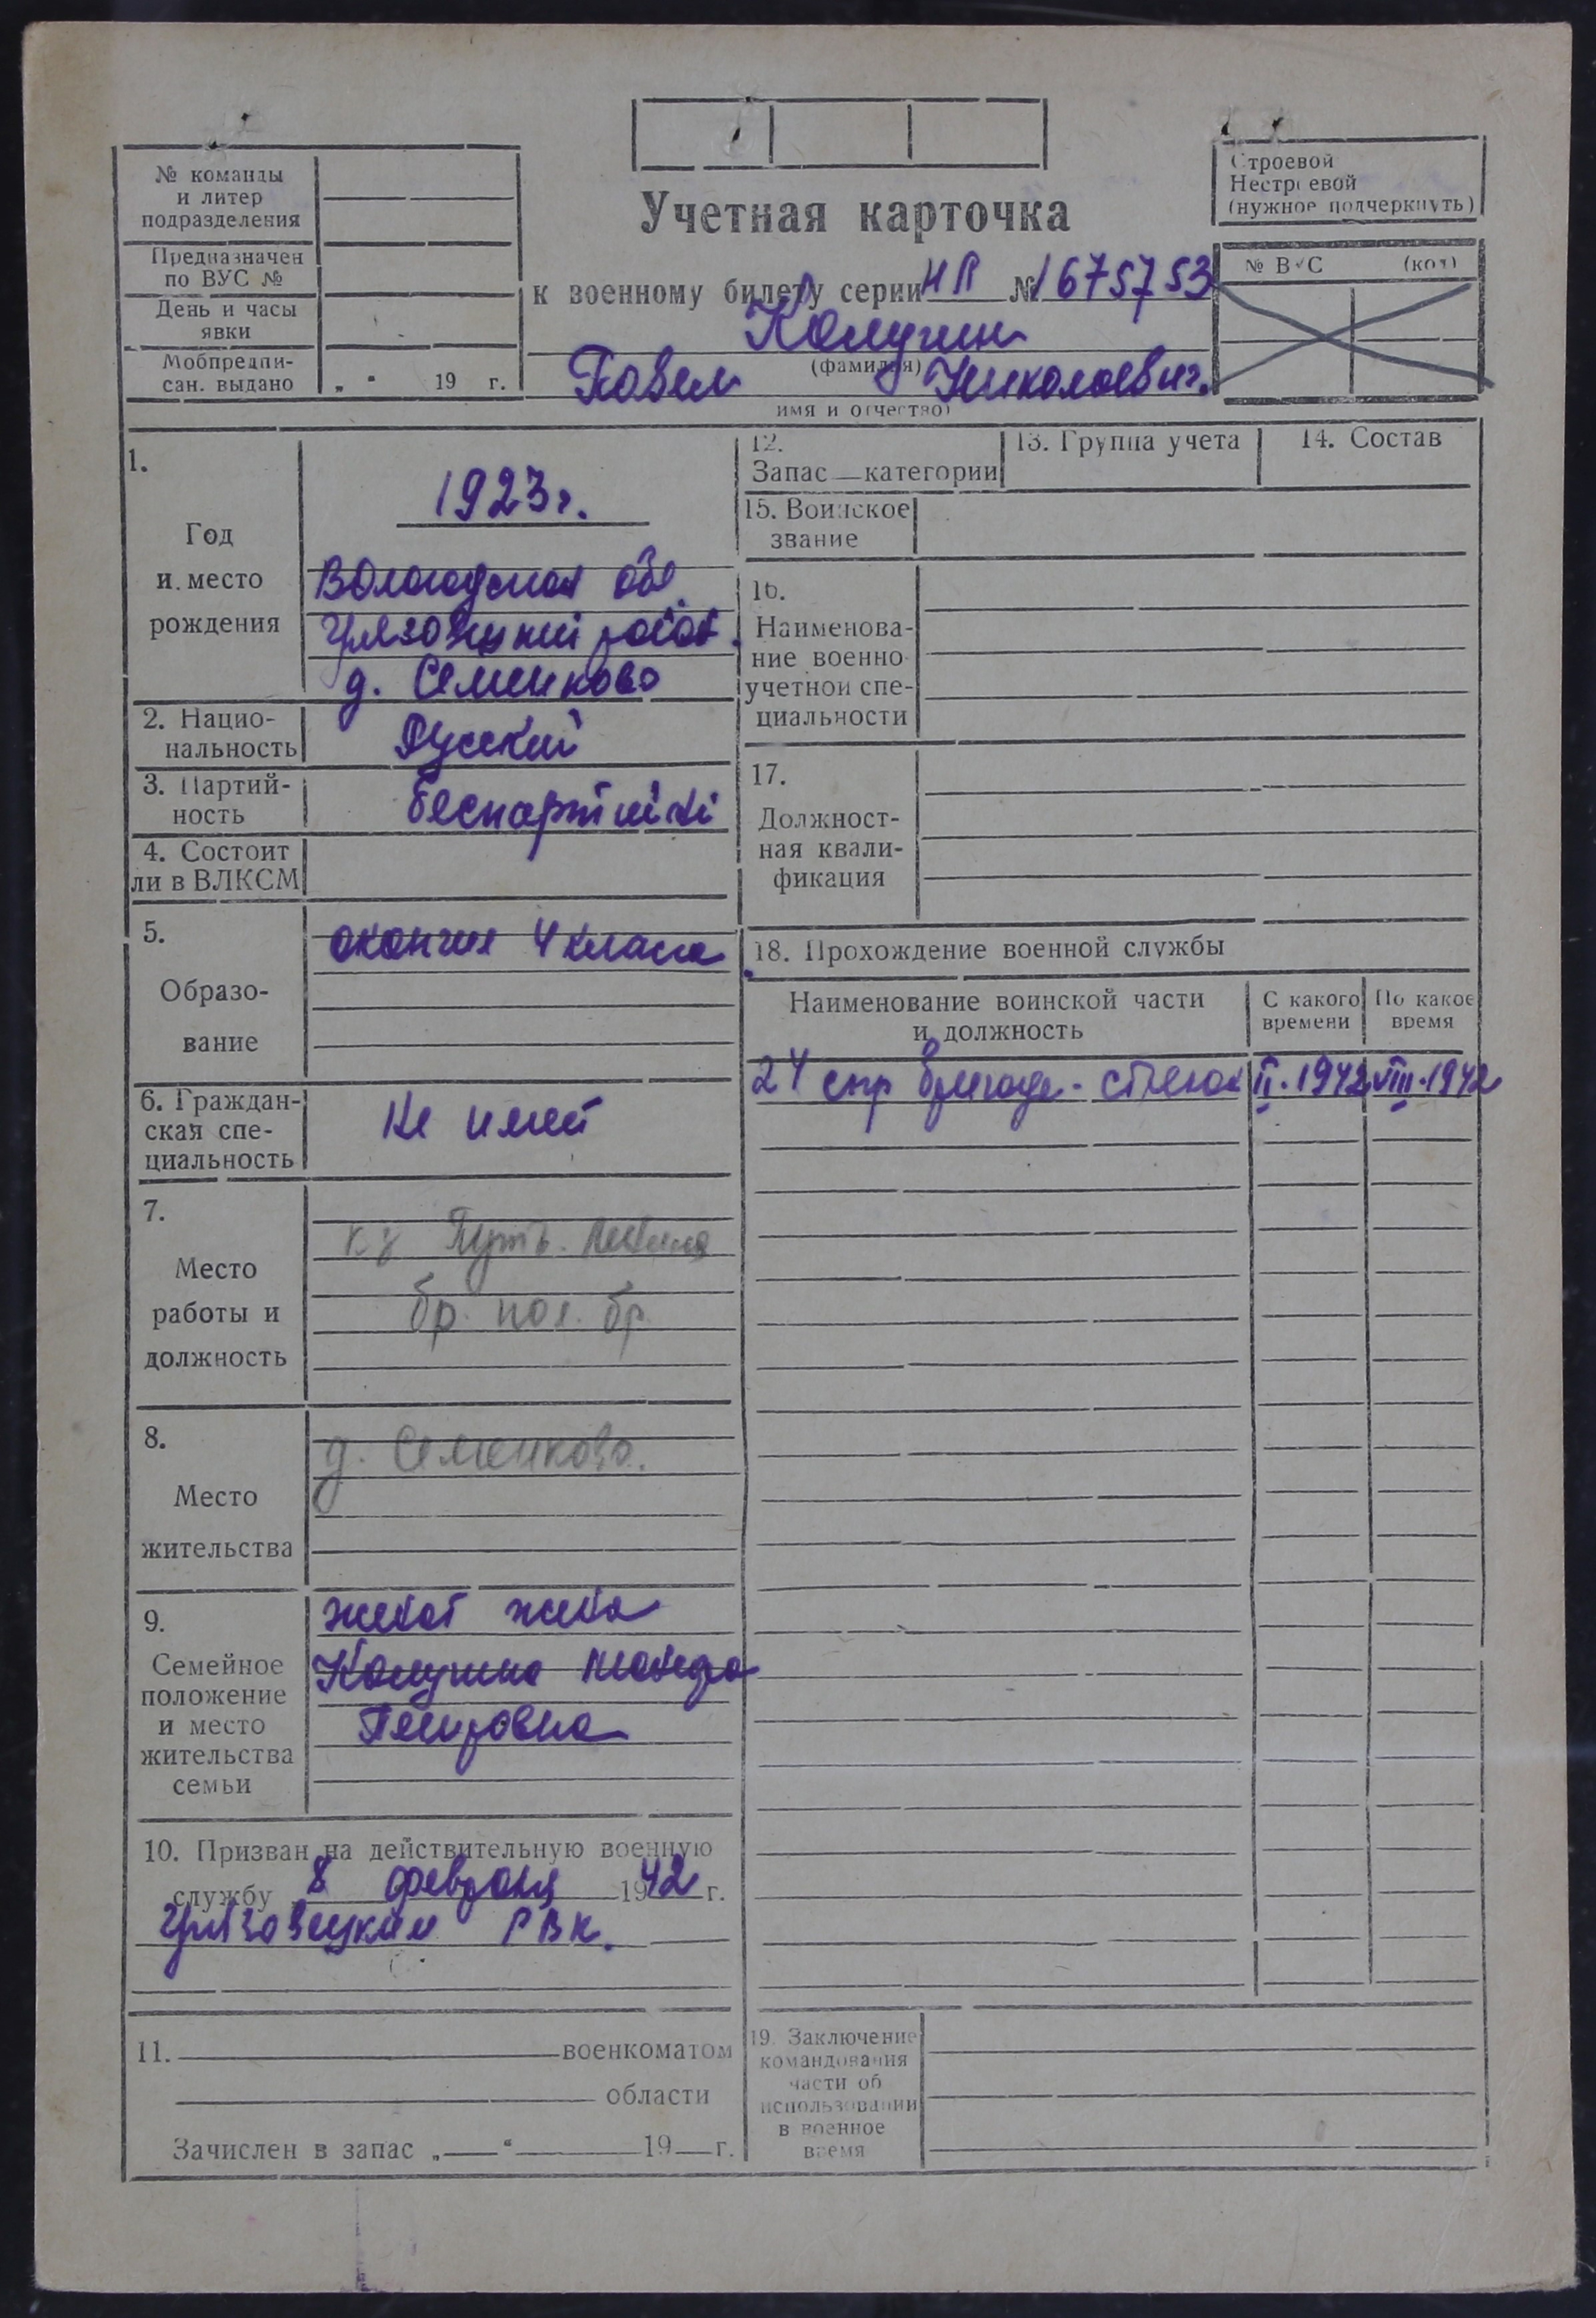 № команды
и литер
подразделения
Предназначен
по ВУС №
День и часы
явки
Мобпредпи-
сан. выдано „ “ 19 г.
Учетная карточка
к военному билету серии НЛ № 1675753
Комугин
(фамилия)
Павел Николаевич.
имя и отчество)
Строевой
Нестроевой
(нужное подчеркнуть)
№ ВУС (код)
1.
Год
и место
рождения
1923г.
Вологодская обл.
Грязовецкий район.
д. Семенково
2. Нацио-
нальность
Русский
3. Партий-
ность
беспартийный
4. Состоит
ли в ВЛКСМ
5.
Образо-
вание
окончил 4 класса
6. Граждан-
ская спе-
циальность
Не имеет
7.
Место
работы и
должность
к-з Путь Ленина
бр. пол. бр.
8.
Место
жительства
д. Семенково.
9.
Семейное
положение
и место
жительства
семьи
женат жена
10. Призван на действительную военную
службу 8 февраля 1942 г.
Грязовецким РВК.
11. военкоматом
области
Зачислен в запас „ “ 19 г.
12.
Запас — категории
13. Группа учета
14. Состав
15. Воинское
звание
16.
Наименова-
ние военно
учетной спе-
циальности
17.
Должност-
ная квали-
фикация
18. Прохождение военной службы
Наименование воинской части
и должность
С какого
времени
По какое
время
24 стр бригада - стрелок II.1942 VIII.1942
19. Заключение
командования
части об
использовании
в военное
время